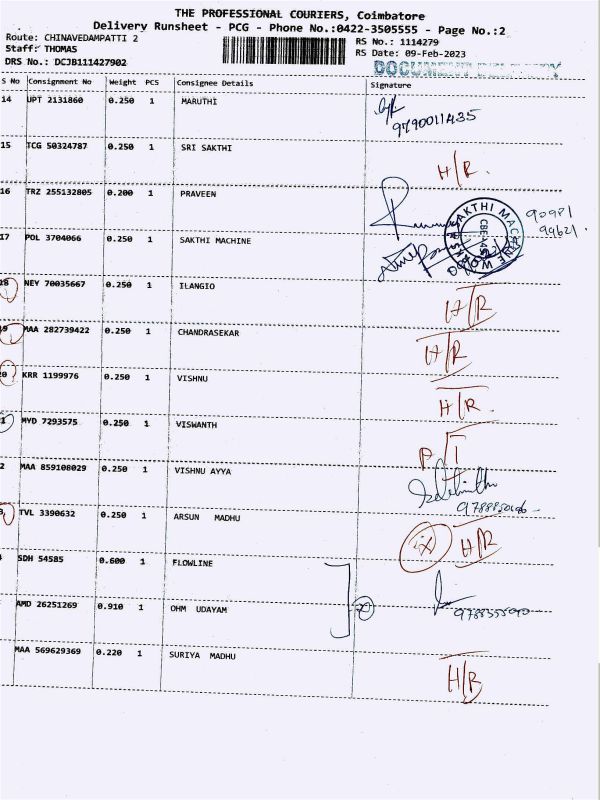 THE PROFESSIONAL COURIERS, Coimbatore
Delivery Runsheet - PCG - Phone No.:0422-3505555 - Page No.:2
Route: CHINAVEDAMPATTI 2
RS No.: 1114279
Staff: THOMAS
RS Date: 09-Feb-2023
DRS No.: DCJB111427902
DOCUMENT DELIVERY
S No Consignment No Weight PCS Consignee Details Signature
14 UPT 2131860 0.250 1 MARUTHI
9790011435
15 TCG 50324787 0.250 1 SRI SAKTHI H/R.
16 TRZ 255132805 0.200 1 PRAVEEN
90981
99621
SAKTHI MACHINE WORKS
17 POL 3704066 0.250 1 SAKTHI MACHINE
18 NEY 70035667 0.250 1 ILANGIO H/R
19 MAA 282739422 0.250 1 CHANDRASEKAR H/R
20 KRR 1199976 0.250 1 VISHNU H/R.
1 MYD 7293575 0.250 1 VISWANTH
2 MAA 859108029 0.250 1 VISHNU AYYA
3 TVL 3390632 0.250 1 ARSUN MADHU H/R
SDH 54585 0.600 1 FLOWLINE
AMD 26251269 0.910 1 OHM UDAYAM
MAA 569629369 0.220 1 SURIYA MADHU H/R